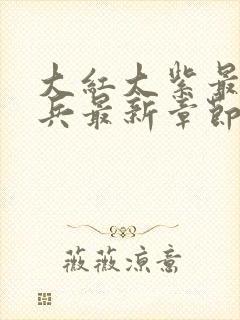 大红大紫最
兵最新章节
薇薇凉意